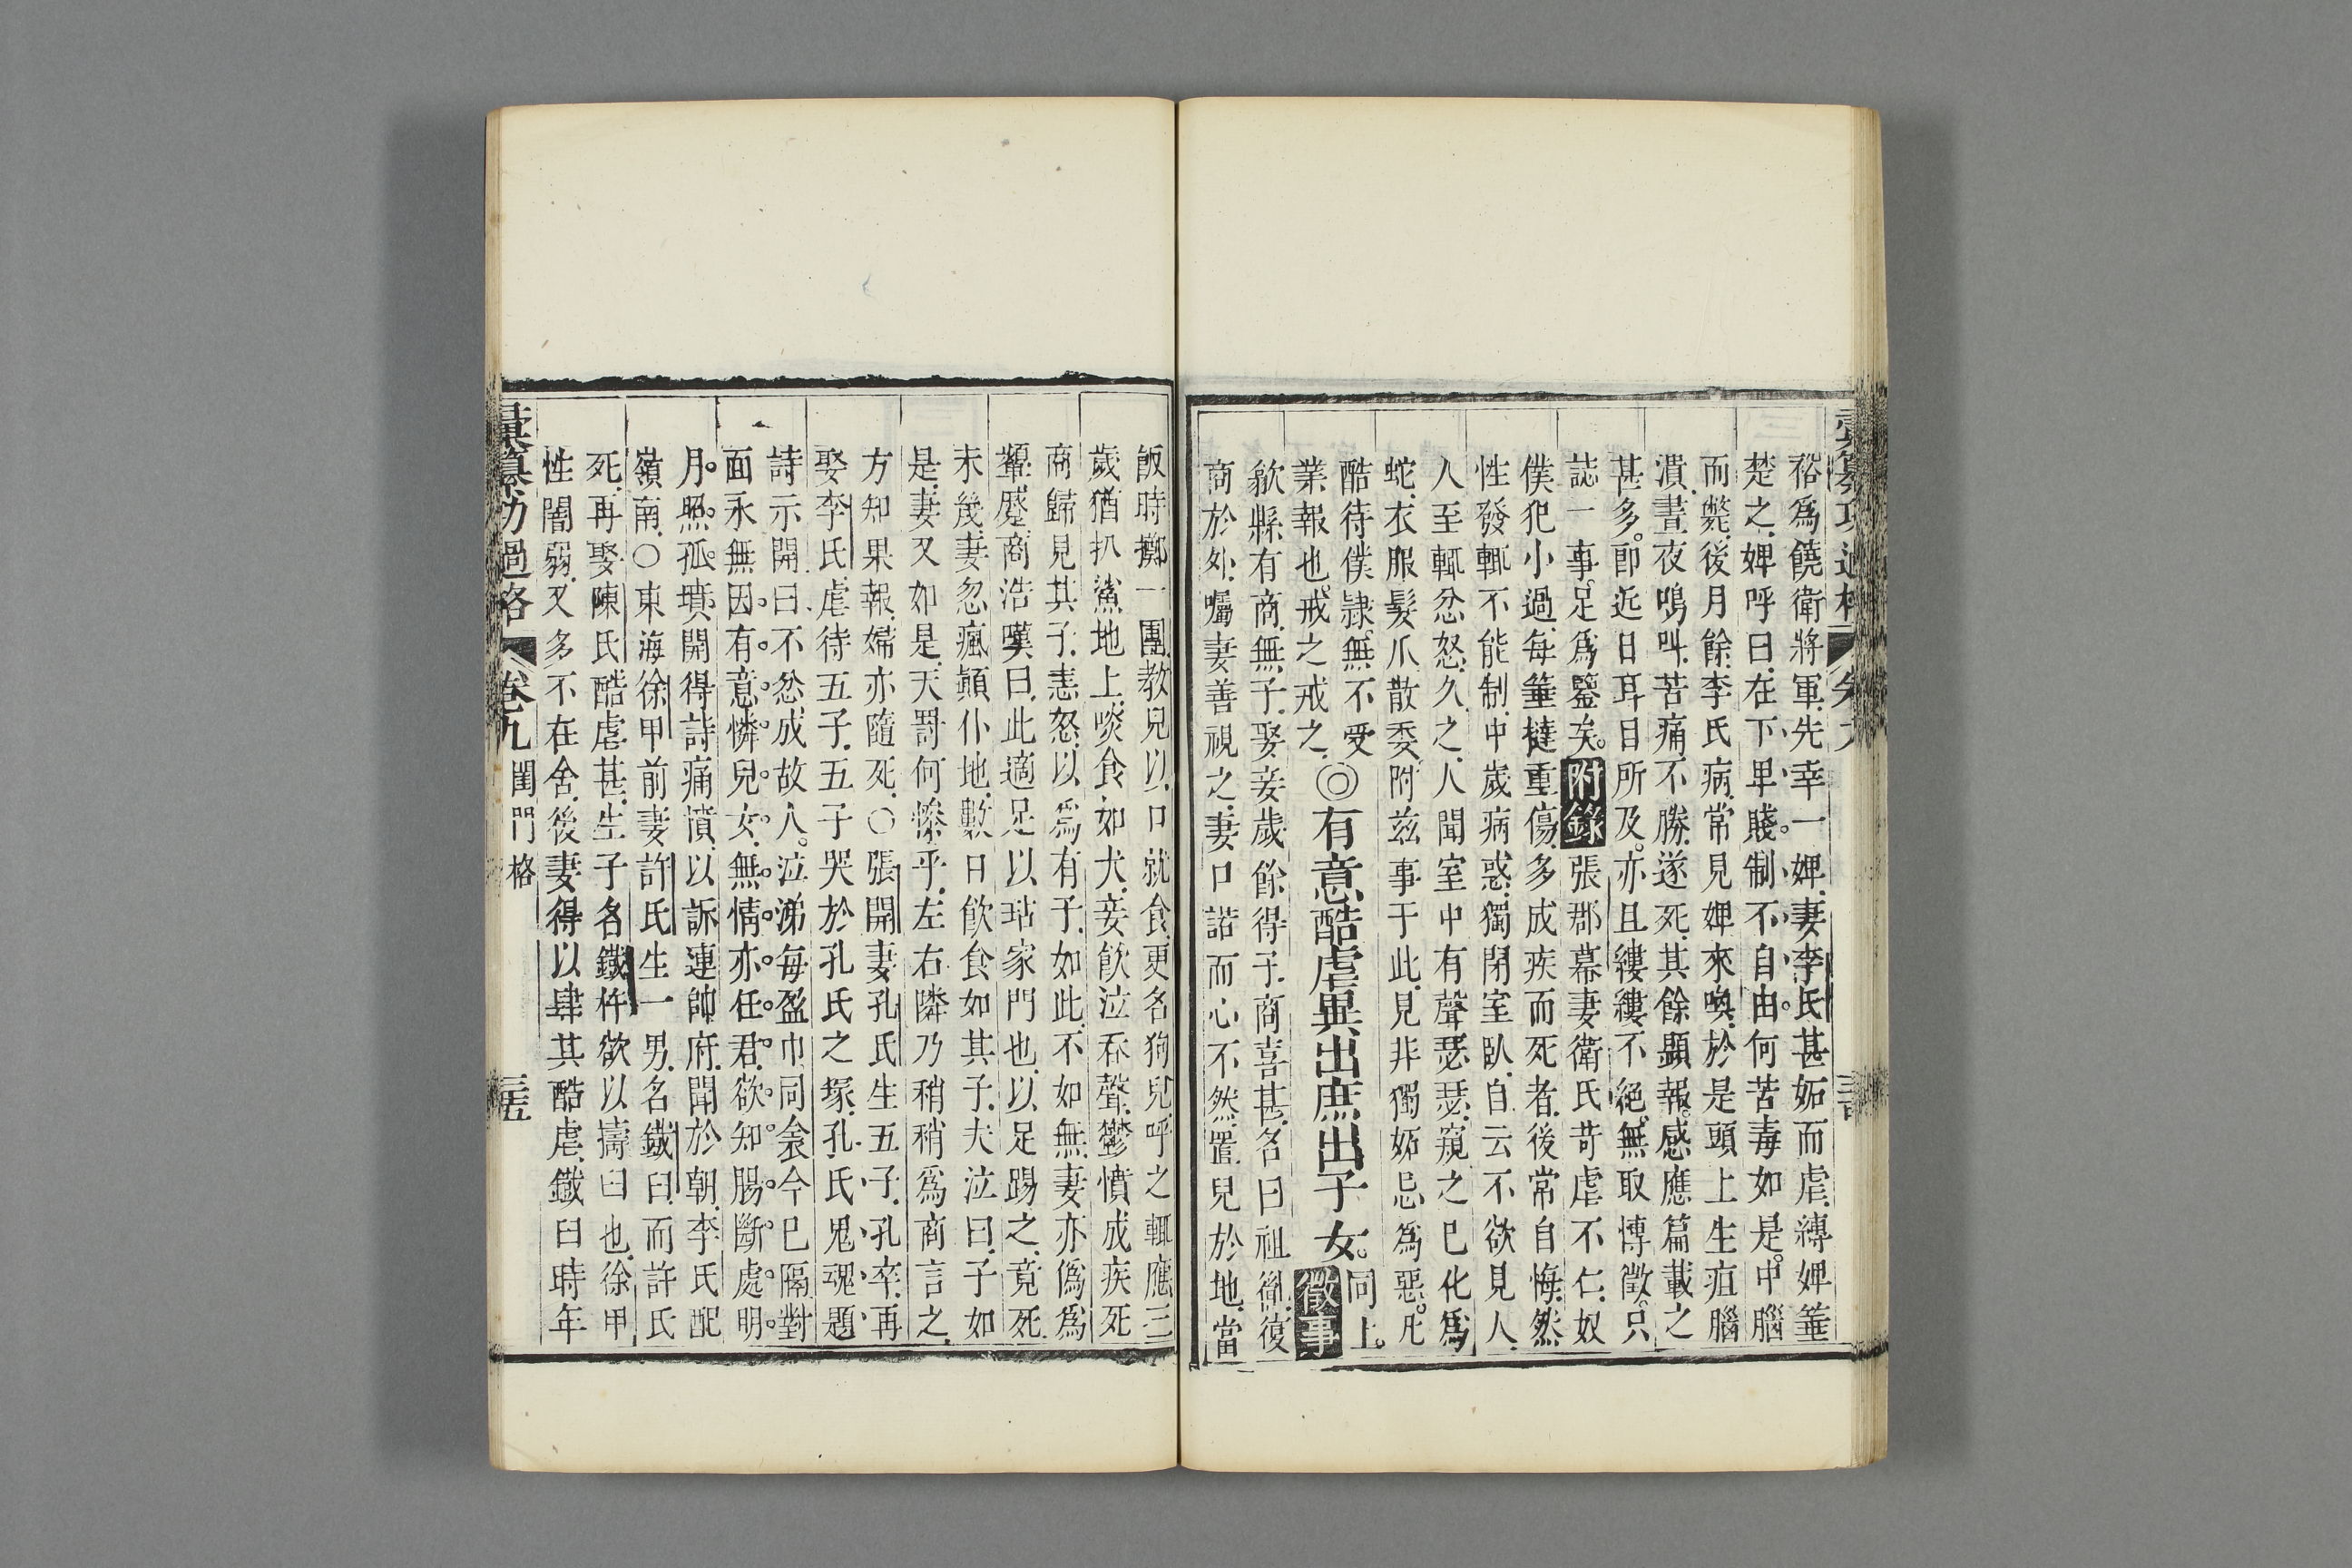 裕爲饒衛將軍先幸一婢妻李氏甚妬而虐縛婢箠
楚之婢呼曰在下卑賤制不自由何苦毒如是中腦
而斃後月餘李氏病常見婢來喚於是頭上生疽腦
潰晝夜鳴叫苦痛不勝遂死其餘顯報感應篇載之
甚多卽近日耳目所及亦且縷縷不絕無取博徵只
誌一事足爲鑒矣附錄張郡幕妻衛氏苛虐不仁奴
僕犯小過每箠撻重傷多成疾而死者後常自悔然
性發輒不能制中歲病惑獨閉室臥自云不欲見人
人至輒忿怒久之人聞室中有聲瑟瑟窺之已化爲
蛇衣服髮爪散委附茲事于此見非獨妬忌爲惡凡
酷待僕隷無不受
業報也戒之戒之◎有意酷虐異出庶出子女同上徵事
歙縣有商無子娶妾歲餘得子商喜甚名曰祖衕復
商於外囑妻善視之妻口諾而心不然置兒於地當
彙纂功過格 卷九 閨門格 三五
飯時擲一團教兒以口就食更名狗兒呼之輒應三
歲猶扒鯊地上啖食如犬妾飮泣吞聲鬱憤成疾死
商歸見其子恚怒以爲有子如此不如無妻亦僞爲
顰蹙商浩嘆曰此適足以玷家門也以足踢之竟死
未幾妻忽瘋顚仆地數日飮食如其子夫泣曰子如
是妻又如是天罰何慘乎左右隣乃稍稍爲商言之
方知果報婦亦隨死○張開妻孔氏生五子孔卒再
娶李氏虐待五子五子哭於孔氏之塚孔氏鬼魂題
詩示開曰不忿成故人泣涕每盈巾同衾今已隔對
面永無因有意憐兒女無情亦任君欲知腸斷處明
月照孤墳開得詩痛憤以訴連帥府聞於朝李氏配
嶺南○東海徐甲前妻許氏生一男名鐵臼而許氏
死再娶陳氏酷虐甚生子名鐵杵欲以擣臼也徐甲
性闇弱又多不在舍後妻得以肆其酷虐鐵臼時年